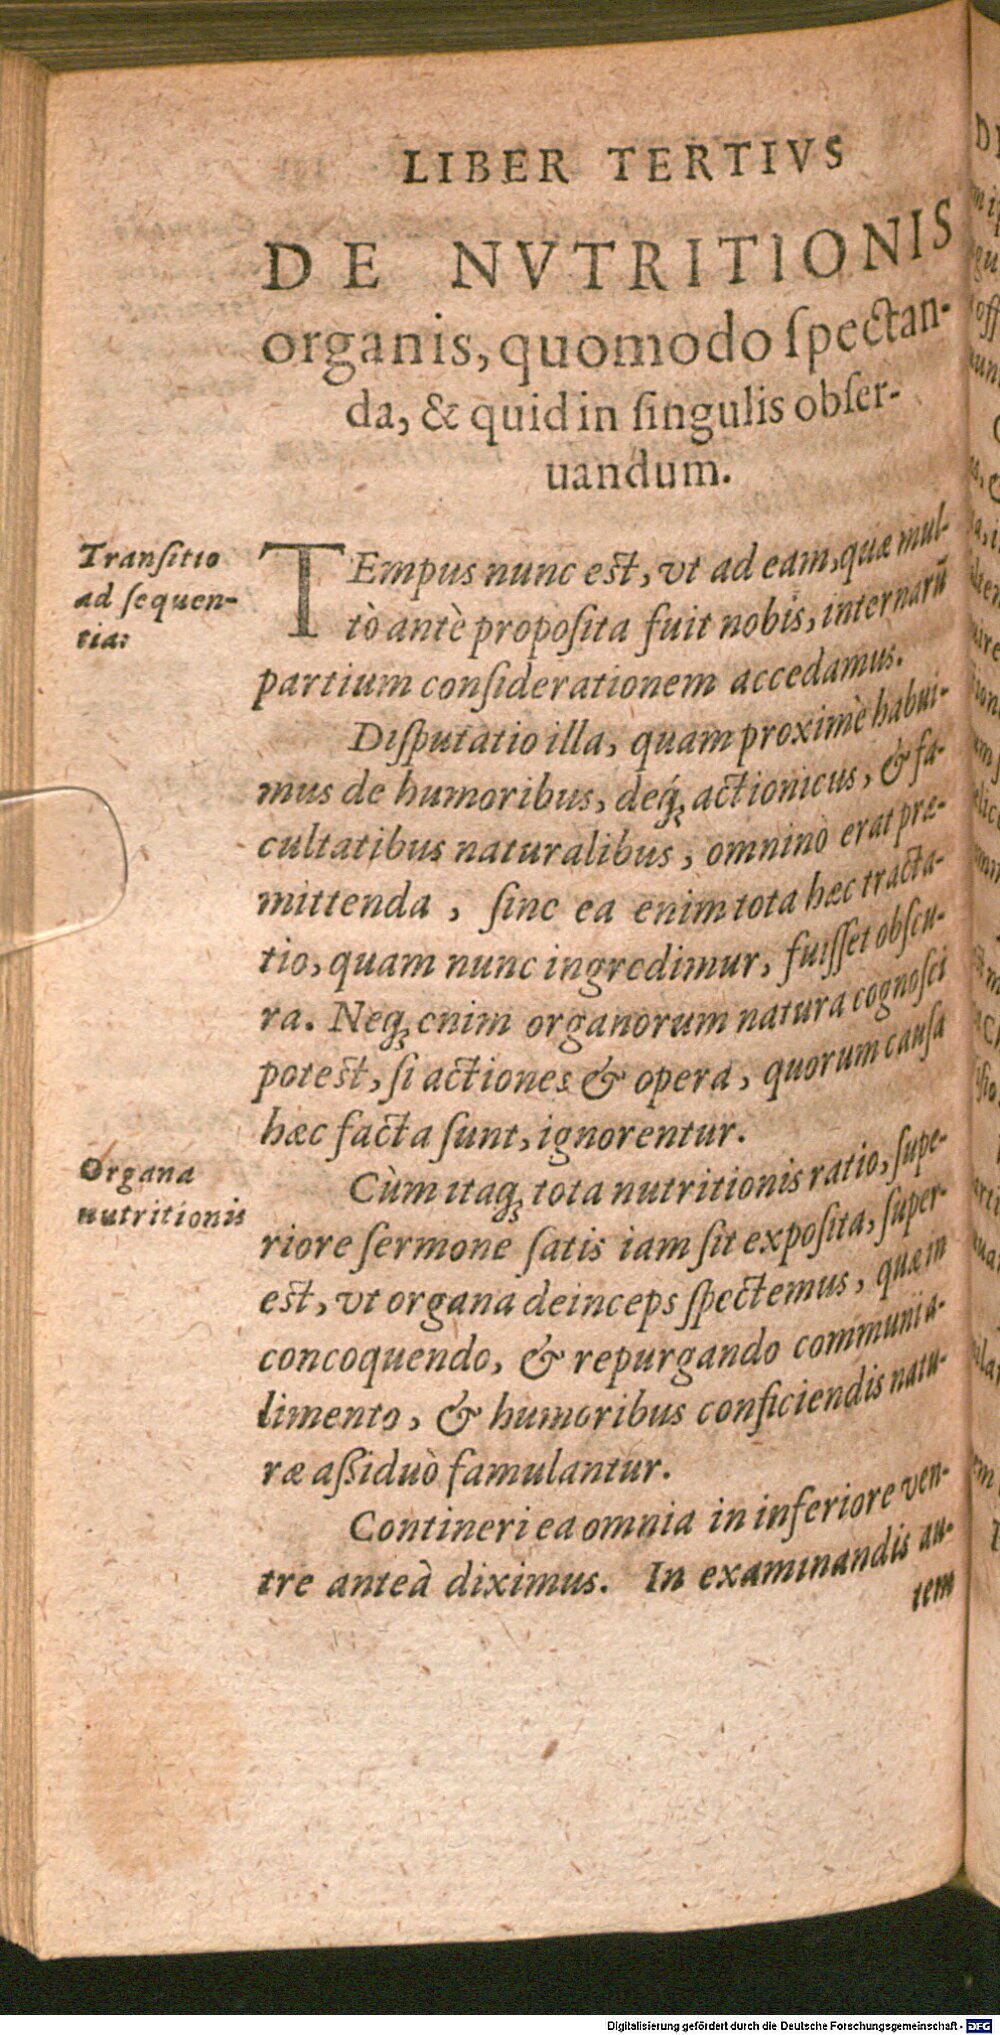 LIBER TERTIVS
DE NVTRITIONIS
organis, quomodo ſpectan-
da, & quid in ſingulis obſer-
uandum.
Tranſitio
ad ſequen-
tia:
TEmpus nunc eſt, vt ad eam, quæ mul-
tò antè propoſita fuit nobis, internarū
partium conſiderationem accedamus.
Diſputatio illa, quam proximè habui-
mus de humoribus, deq́ꝫ actionicus, & fa-
cultatibus naturalibus, omninò erat præ-
mittenda, ſine ea enim tota hæc tracta-
tio, quam nunc ingredimur, fuiſſet obſcu-
ra. Neqꝫ enim organorum natura cognoſci
poteſt, ſi actiones & opera, quorum cauſa
hæc facta ſunt, ignorentur.
Organa
nutritionis
Cùm itaqꝫ tota nutritionis ratio, ſupe-
riore ſermone ſatis iam ſit expoſita, ſuper-
eſt, vt organa deinceps ſpectemus, quæ in
concoquendo, & repurgando communi a-
limento, & humoribus conficiendis natu-
ræ aſſiduò famulantur.
Contineri ea omnia in inferiore ven-
tre anteà diximus. In examinandis au-
tem
Digitalisierung gefördert durch die Deutsche Forschungsgemeinschaft - DFG